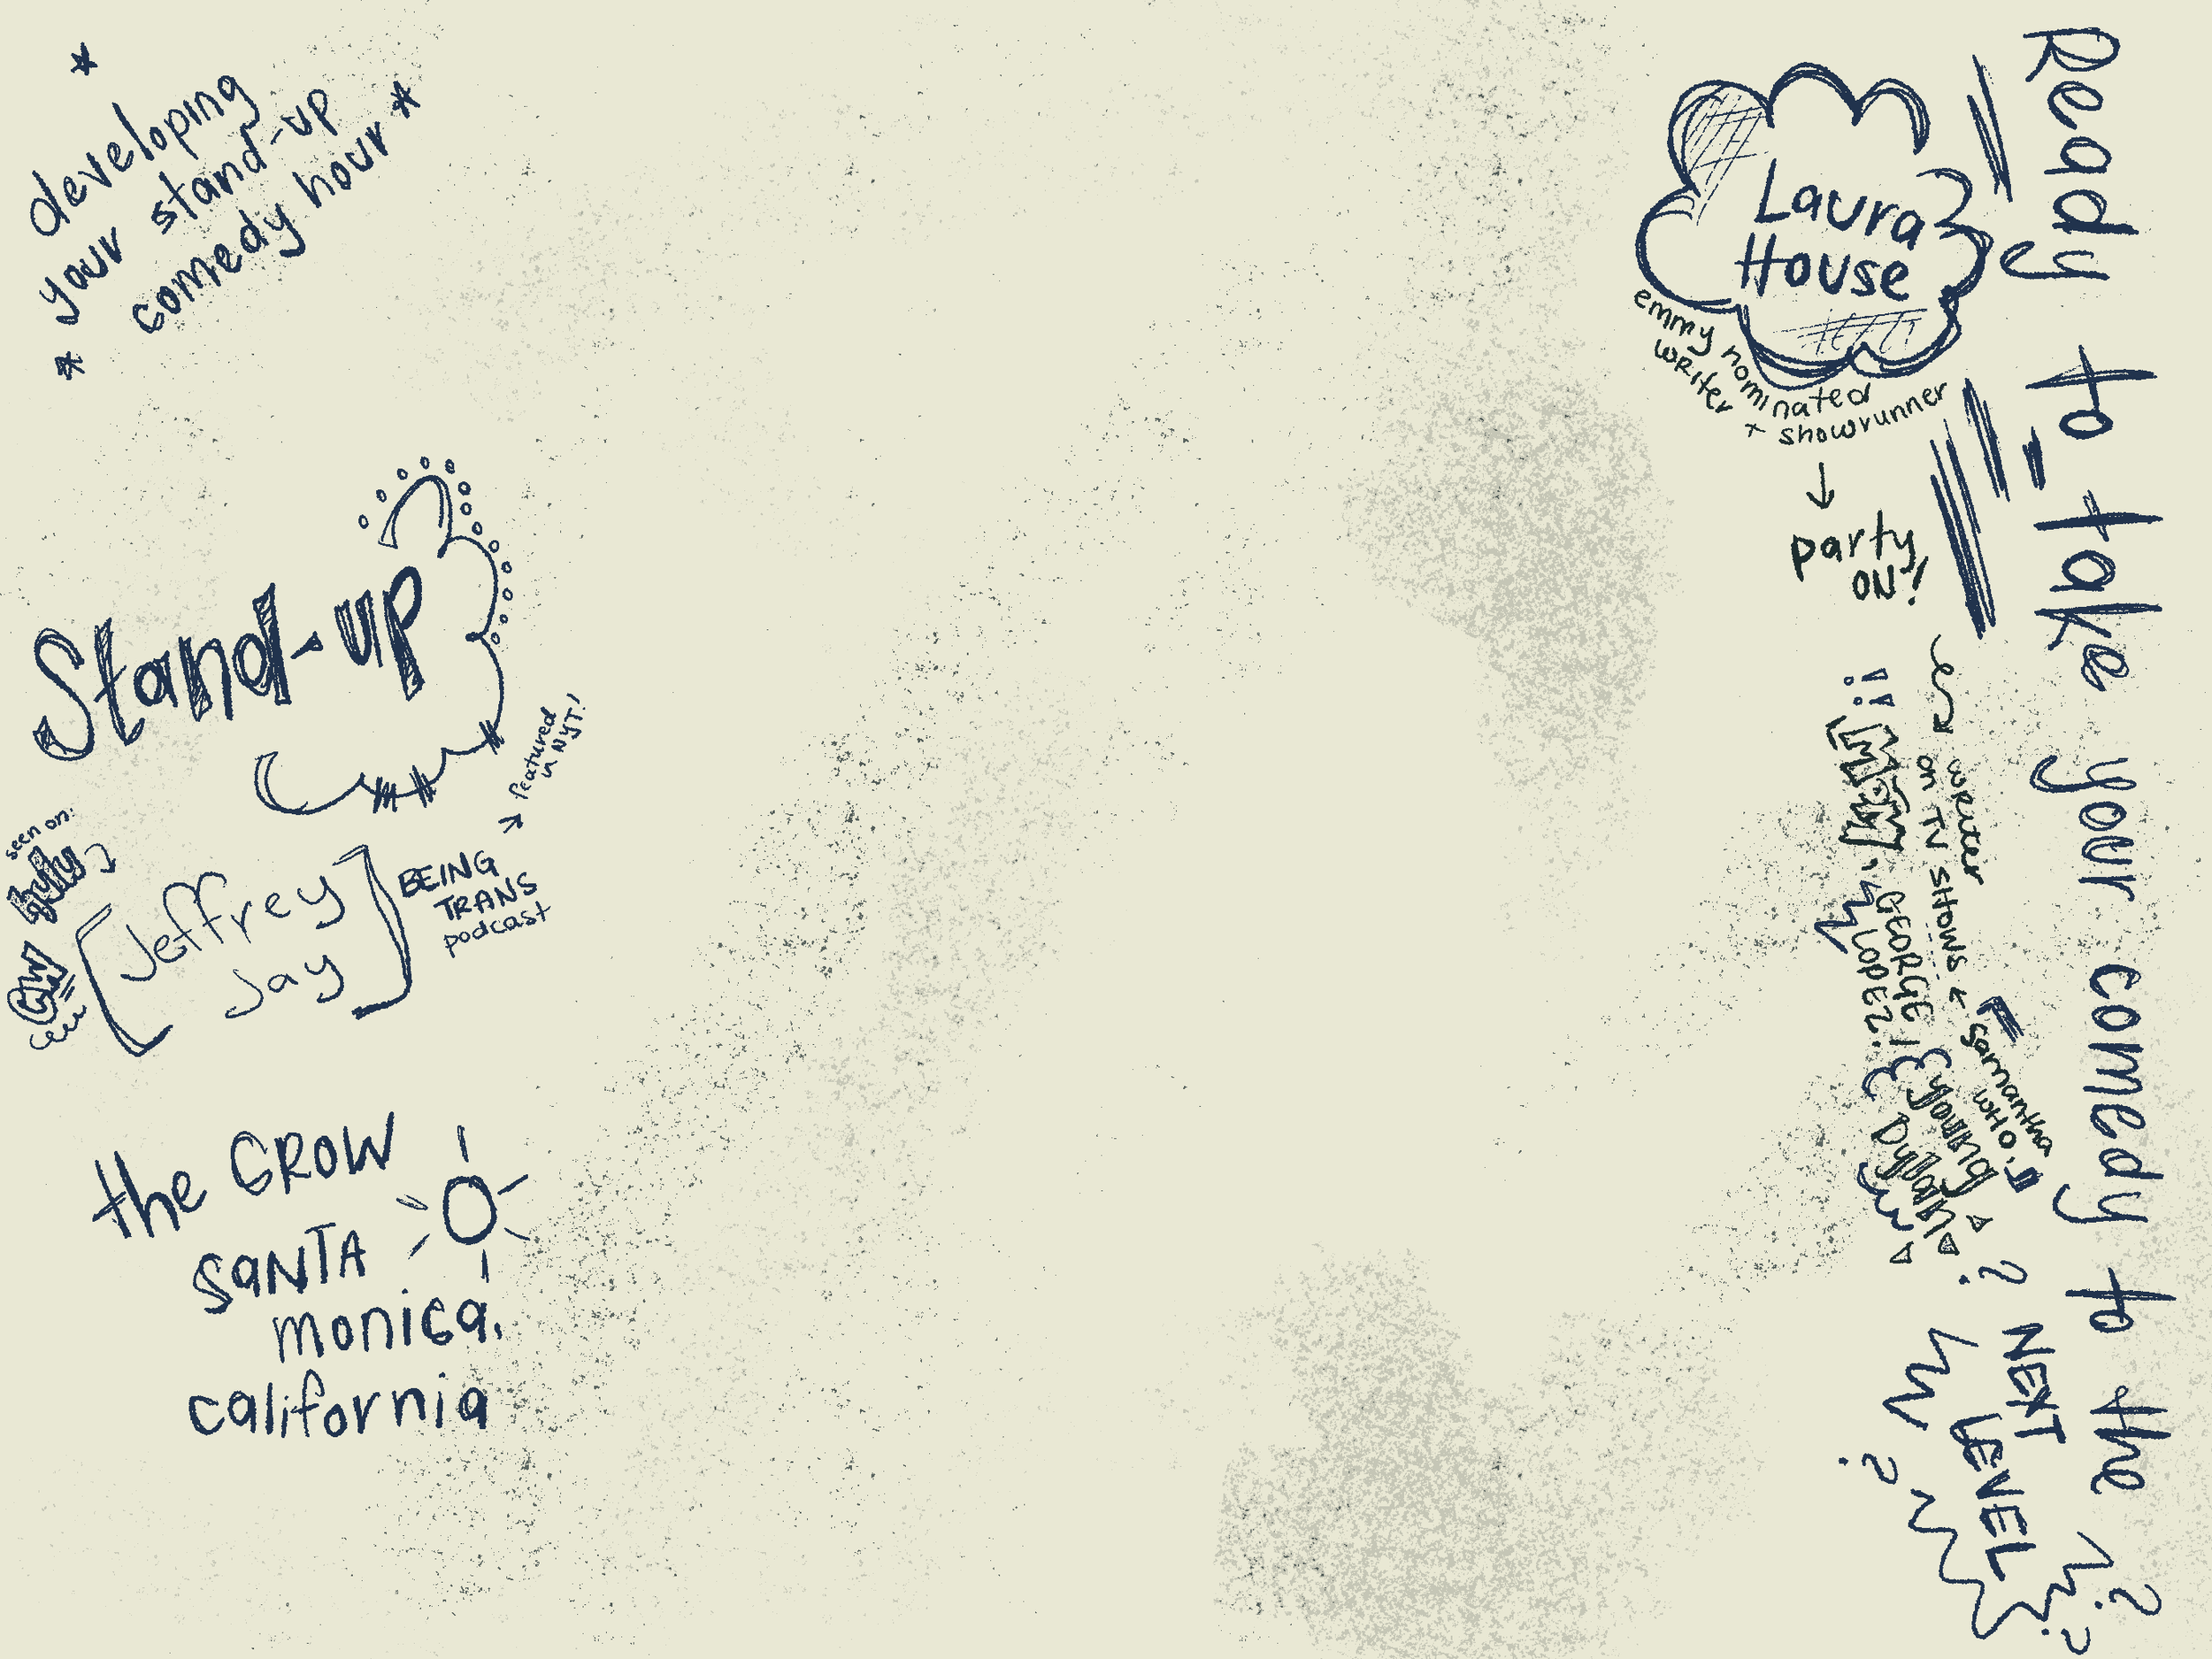 developing
your stand-up
comedy hour
Stand-up
seen on:
[Jeffrey
Jay]
BEING
TRANS
podcast
featured
in NYT!
the GROW
SANTA
monica,
california
Laura
House
emmy nominated
writer + showrunner
party
ON!
writer
on TV SHOWS
MOM,
GEORGE
LOPEZ,
Samantha
WHO,
young
Dylan
Ready to take your comedy to the
NEXT
LEVEL
?
?
?
?